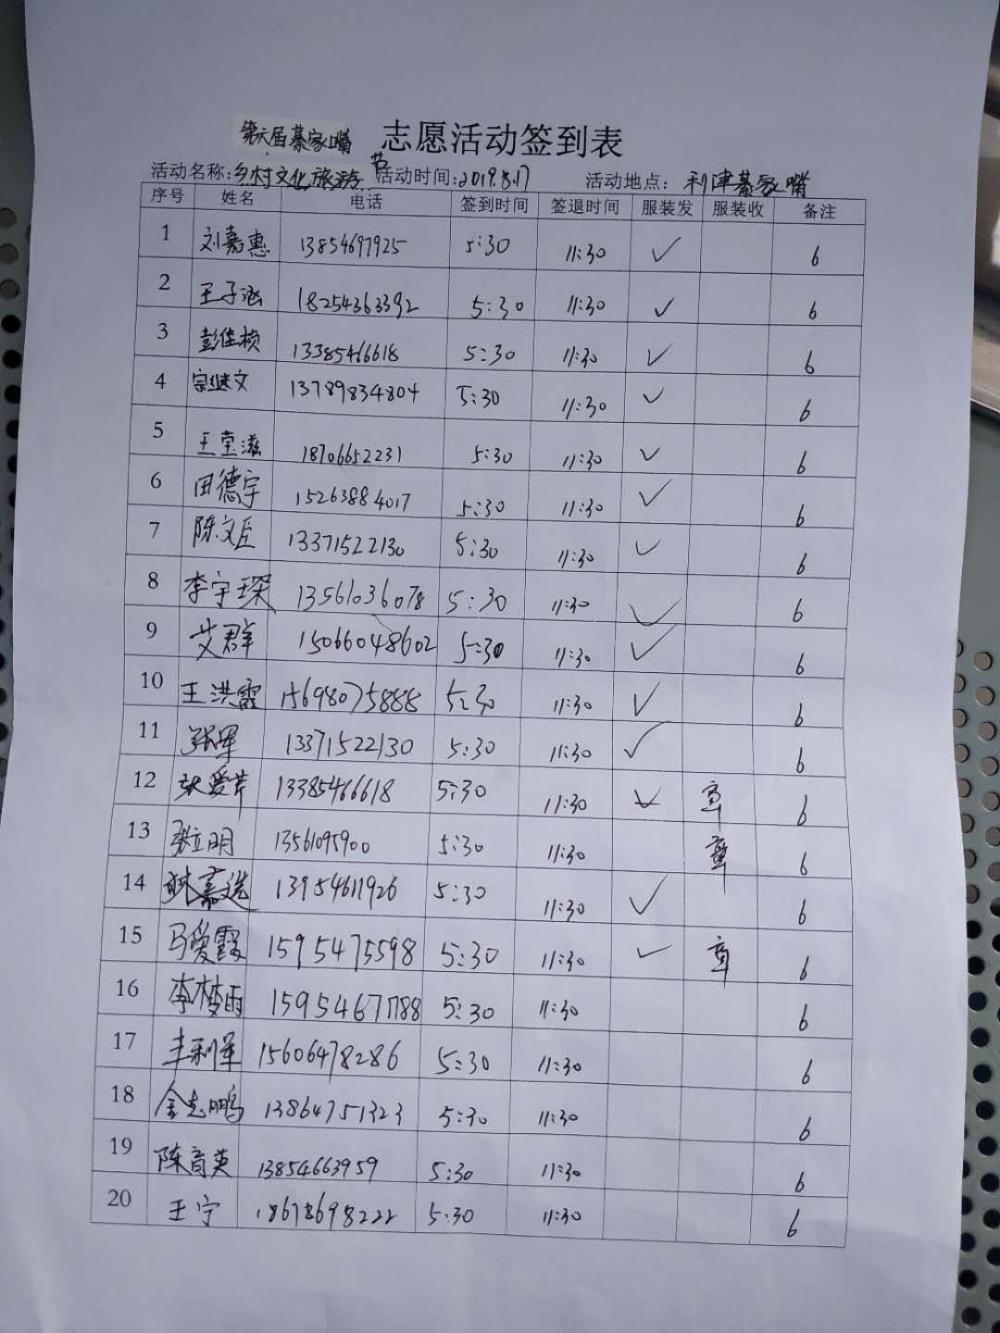 第六届綦家嘴 志愿活动签到表
活动名称:乡村文化旅游节 活动时间:2019.8.17 活动地点：利津綦家嘴
序号 姓名 电话 签到时间 签退时间 服装发 服装收 备注
1 刘嘉惠 13854697925 5:30 11:30 ✓ 6
2 王子涵 18254363392 5:30 11:30 ✓ 6
3 彭佳桢 13385466618 5:30 11:30 ✓ 6
4 宗继文 13789834804 5:30 11:30 ✓ 6
5 王莹滋 18706652231 5:30 11:30 ✓ 6
6 田德宇 15263884017 5:30 11:30 ✓ 6
7 陈文臣 13371522130 5:30 11:30 ✓ 6
8 李宇琛 13561036078 5:30 11:30 ✓ 6
9 艾群 15066048602 5:30 11:30 ✓ 6
10 王洪霞 15698075888 5:30 11:30 ✓ 6
11 张军 13371522130 5:30 11:30 ✓ 6
12 张爱芹 13385466618 5:30 11:30 ✓ 章 6
13 张立明 13561095900 5:30 11:30 章 6
14 13954611926 5:30 11:30 ✓ 6
15 马爱霞 1595475598 5:30 11:30 ✓ 章 6
16 李梦雨 15954671788 5:30 11:30 6
17 丰利军 15606478286 5:30 11:30 6
18 金志鹏 13864751323 5:30 11:30 6
19 陈育英 13854663959 5:30 11:30 6
20 王宁 18678698222 5:30 11:30 6